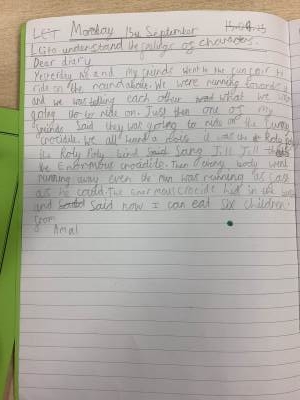 LET Monday 15th September 15.9.25
LI: to understand the feelings of characters.
Dear diary
Yesterday Me and my friends went to the fun fair to
ride on the roundabouts. We were running towards it
and we was telling each other what we was
going to ride on. Just then one of my
friends said they was going to ride on the funny
crocidile. We all heard a noise it was the Roly
the Roly Poly bird sang
the Enormous crocidile. Then every body went
running away even the man was running as fast
as he could. The enormous crocidile hid in the
and said now I can eat six children.
from
Amal